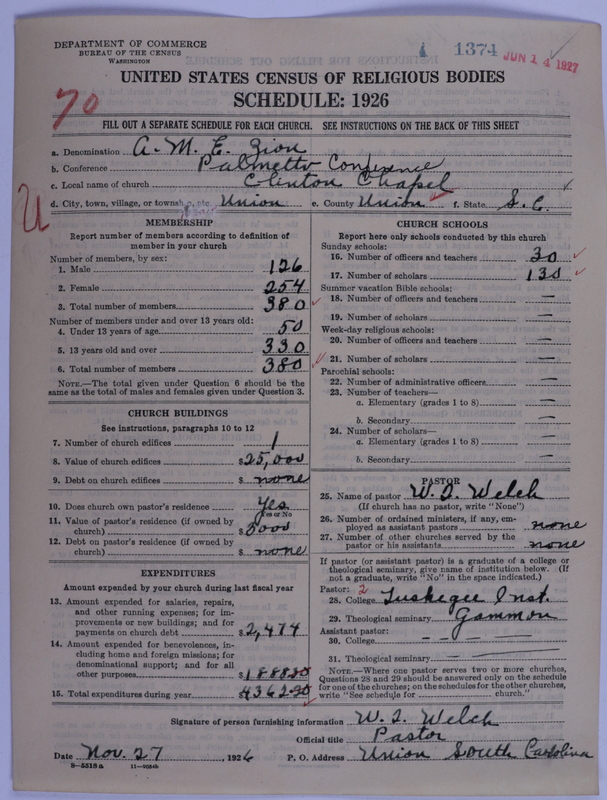 DEPARTMENT OF COMMERCE
BUREAU OF THE CENSUS
WASHINGTON
1 1374 JUN 14 1927
UNITED STATES CENSUS OF RELIGIOUS BODIES
SCHEDULE: 1926
70
FILL OUT A SEPARATE SCHEDULE FOR EACH CHURCH. SEE INSTRUCTIONS ON THE BACK OF THIS SHEET
a. Denomination A. M. E. Zion
b. Conference Palmetto Conference
c. Local name of church Clinton Chapel
d. City, town, village, or township, etc. Union e. County Union f. State S. C.
U
MEMBERSHIP
Report number of members according to definition of member in your church
Number of members, by sex:
1. Male 126
2. Female 254
3. Total number of members 380
Number of members under and over 13 years old:
4. Under 13 years of age 50
5. 13 years old and over 330
6. Total number of members 380
NOTE.—The total given under Question 6 should be
same as the total of males and females given under Question 3.
CHURCH BUILDINGS
See instructions, paragraphs 10 to 12
7. Number of church edifices 1
8. Value of church edifices $25,000
9. Debt on church edifices $ none
10. Does church own pastor's residence Yes
Yes or No
11. Value of pastor's residence (if owned by
church) $3000
12. Debt on pastor's residence (if owned by
church) $ none
EXPENDITURES
Amount expended by your church during last fiscal year
13. Amount expended for salaries, repairs,
and other running expenses; for im-
provements or new buildings; and for
payments on church debt $2,474
14. Amount expended for benevolences, in-
cluding home and foreign missions; for
denominational support; and for all
other purposes $1888.30
15. Total expenditures during year 4362.30
CHURCH SCHOOLS
Report here only schools conducted by this church
Sunday schools:
16. Number of officers and teachers 30
17. Number of scholars 130
Summer vacation Bible schools:
18. Number of officers and teachers —
19. Number of scholars —
Week-day religious schools:
20. Number of officers and teachers —
21. Number of scholars —
Parochial schools:
22. Number of administrative officers —
23. Number of teachers—
a. Elementary (grades 1 to 8) —
b. Secondary —
24. Number of scholars—
a. Elementary (grades 1 to 8) —
b. Secondary —
PASTOR
25. Name of pastor W. Q. Welch
(If church has no pastor, write "None")
26. Number of ordained ministers, if any, em-
ployed as assistant pastors none
27. Number of other churches served by the
pastor or his assistants none
If pastor (or assistant pastor) is a graduate of a college or
theological seminary, give name of institution below. (If
not a graduate, write "No" in the space indicated.)
Pastor: 2
28. College Tuskegee Inst.
29. Theological seminary Gammon
Assistant pastor:
30. College — — — —
31. Theological seminary
NOTE.—Where one pastor serves two or more churches,
Questions 28 and 29 should be answered only on the schedule
for one of the churches; on the schedules for the other churches,
write "See schedule for church."
Signature of person furnishing information W. Q. Welch
Official title Pastor
Date Nov. 27, 1926 P. O. Address Union South Carolina
8—5518 a